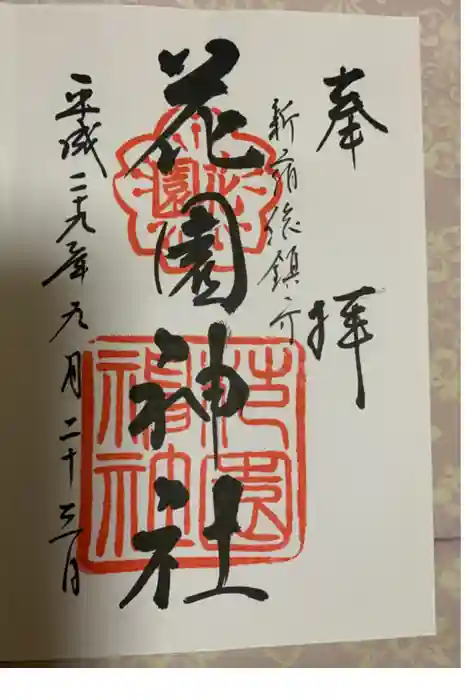 奉拝
新宿総鎮守
花園神社
平成二十九年九月二十三日
花園
神社